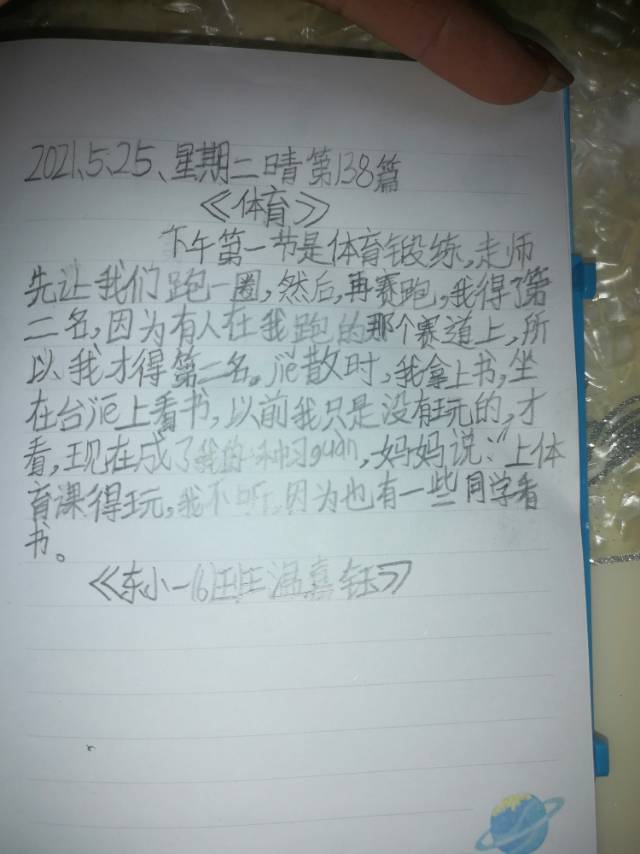 2021、5、25、星期二晴第138篇
《体育》
下午第一节是体育锻练,老师
先让我们跑一圈,然后,再赛跑,我得了第
二名,因为有人在我跑的那个赛道上,所
以我才得第二名。jiě散时,我拿上书,坐
在台jiē上看书,以前我只是没有玩的,才
看,现在成了我的一种习guàn,妈妈说:“上体
育课得玩,我不听,因为也有一些同学看
书。
《东小一(6)班温嘉钰》